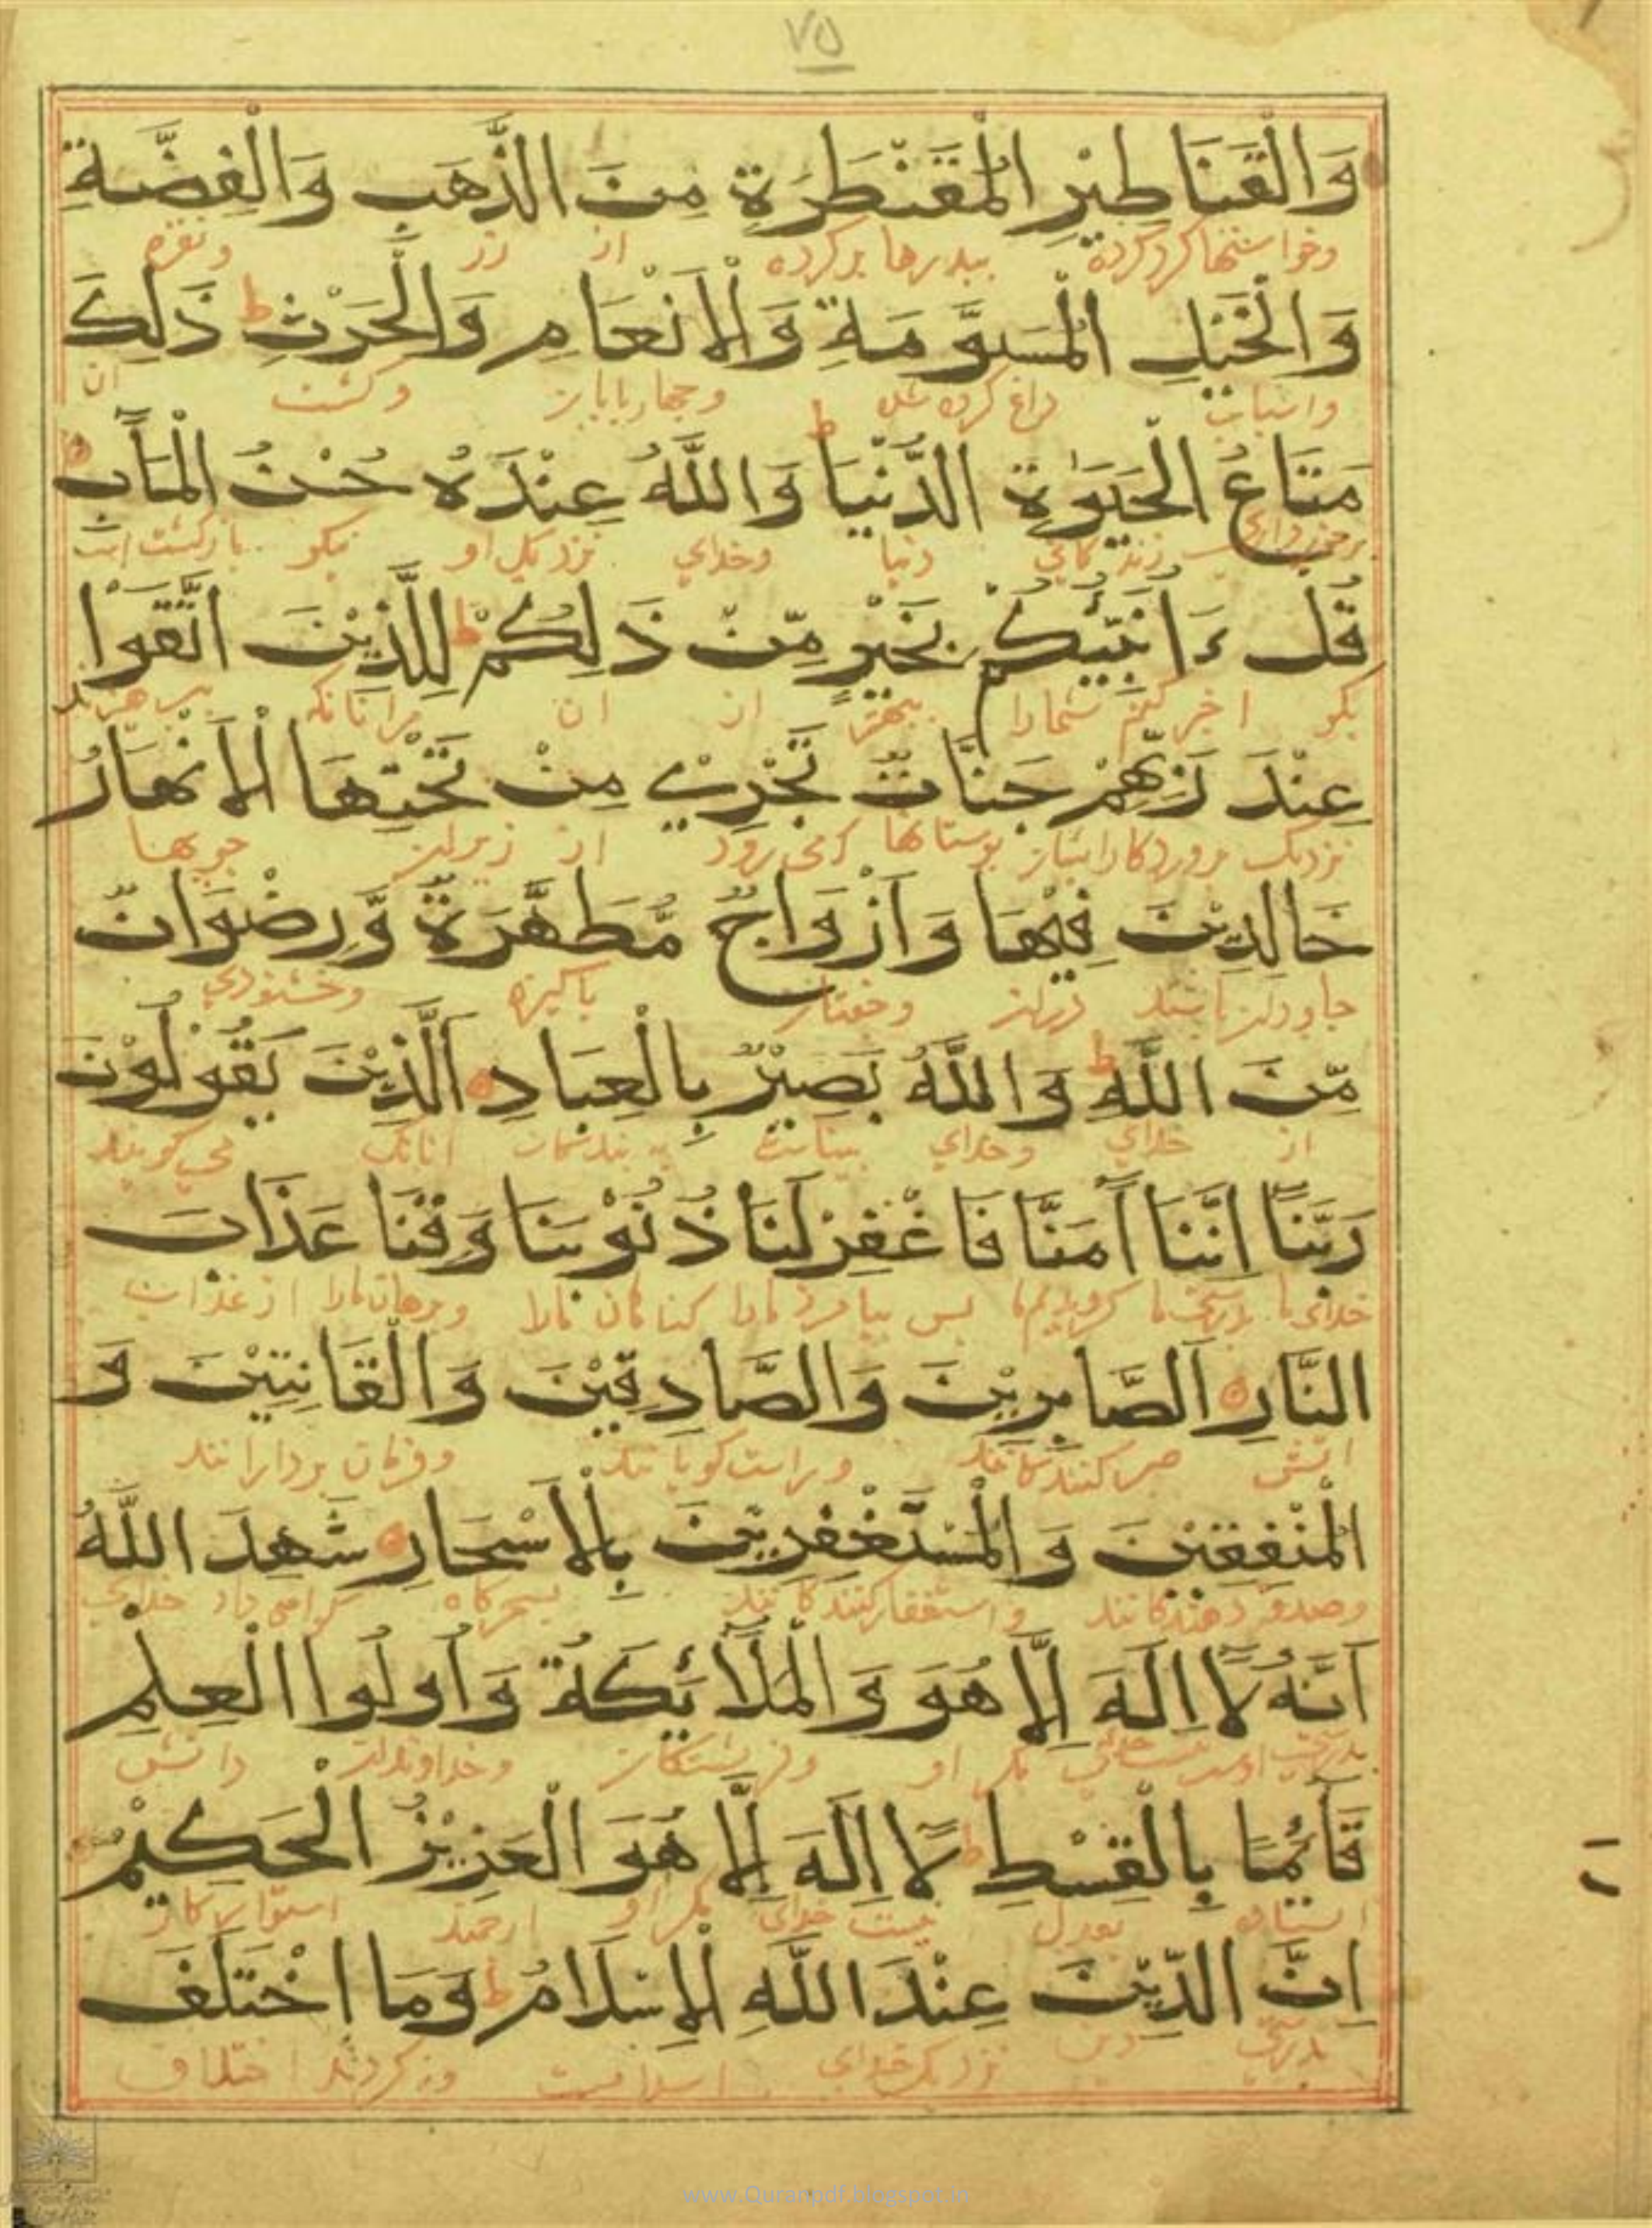 ٧٥
وَالْقَنَاطِيْرِ الْمُقَنْطَرَةِ مِنَ الذَّهَبِ وَالْفِضَّةِ
وخواستها کردکرده ببدرها پرکرده از زر ونقره
وَالْخَيْلِ الْمُسَوَّمَةِ وَالْاَنْعَامِ وَالْحَرْثِ ط ذَلِكَ
واسبان داغ کرده شده وچهارپایان وکشت ان
مَتَاعُ الْحَيَوٰةِ الدُّنْيَا ط وَاللَّهُ عِنْدَهُ حُسْنُ الْمَاٰبِ
برخورداری زندکانی دنیا وخدای نزدیک او نیکو بازکشت است
قُلْ ءَاُنَبِّئُكُمْ بِخَيْرٍ مِّنْ ذَلِكُمْ ط لِلَّذِيْنَ اتَّقَوْا
بکو اخبر کنم شمارا ببهتر از ان مرانانکه پرهیزند
عِنْدَ رَبِّهِمْ جَنَّاتٌ تَجْرِيْ مِنْ تَحْتِهَا الْاَنْهَارُ
نزدیک پروردکار ایشان بوستانها کمی رود از زیران جویها
خَالِدِيْنَ فِيْهَا وَاَزْوَاجٌ مُّطَهَّرَةٌ وَّرِضْوَانٌ
جاودان باشند دران وجفتان پاکیزه وخشنودی
مِّنَ اللَّهِ ط وَاللَّهُ بَصِيْرٌ بِالْعِبَادِ اَلَّذِيْنَ يَقُوْلُوْنَ
از خدای وخدای بیناست به بندکان انانک می کویند
رَبَّنَا اِنَّنَا آمَنَّا فَاغْفِرْ لَنَا ذُنُوْبَنَا وَقِنَا عَذَابَ
خدای ما بدرستی ما کرویدیم ما پس بیامرز مارا کناهان مارا وبرهان مارا از عذاب
النَّارِ اَلصَّابِرِيْنَ وَالصَّادِقِيْنَ وَالْقَانِتِيْنَ وَ
اتش صبر کنندکانند وراست کویانند وفرمان بردارانند
الْمُنْفِقِيْنَ وَالْمُسْتَغْفِرِيْنَ بِالْاَسْحَارِ شَهِدَ اللَّهُ
وصدقه دهندکانند واستغفار کنندکانند بسحرکاه کواهی داد خدای
اَنَّهُ لَا اِلَهَ اِلَّا هُوَ وَالْمَلَائِكَةُ وَاُولُوا الْعِلْمِ
بدرستی مکر او وفریشتکان وخداوندان دانش
قَائِمًا بِالْقِسْطِ ط لَا اِلَهَ اِلَّا هُوَ الْعَزِيْزُ الْحَكِيْمُ
ایستاده بعدل نیست خدای مکر او ارجمند استوار کار
اِنَّ الدِّيْنَ عِنْدَ اللَّهِ الْاِسْلَامُ ط وَمَا اخْتَلَفَ
بدرستی دین نزدیک خدای اسلامست ونکردند اختلاف
www.Quranpdf.blogspot.in